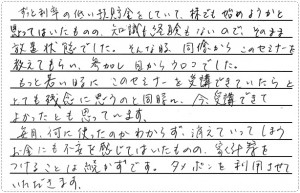 ずっと利率の低い預貯金をしていて、株でも始めようかと
思ってはいたものの、知識も経験もないので、そのまま
放置状態でした。そんな時、同僚からこのセミナーを
教えてもらい、参加し目からウロコでした。
もっと若い時に このセミナーを受講できていたら と
とても残念に思うのと同時に、今受講できて
よかったとも思っています。
毎月、何に使ったのかわからず、消えていってしまう
お金にも不安を感じてはいたものの、家計簿を
つけることは続かずです。タメポンを利用させて
いただきます。